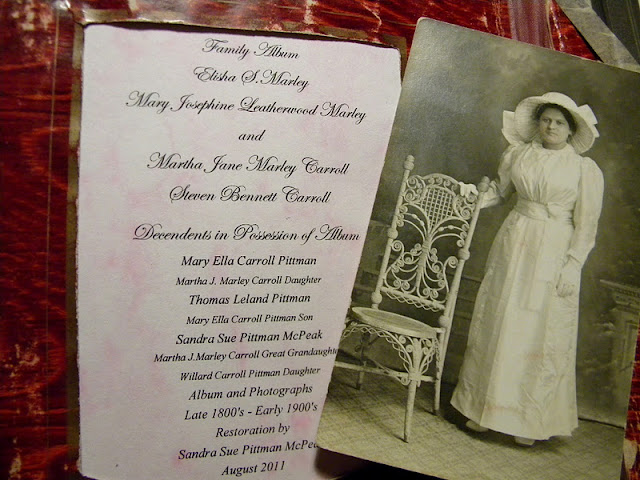 Family Album
Elisha S. Marley
Mary Josephine Leatherwood Marley
and
Martha Jane Marley Carroll
Steven Bennett Carroll
Decendents in Possession of Album
Mary Ella Carroll Pittman
Martha J. Marley Carroll Daughter
Thomas Leland Pittman
Mary Ella Carroll Pittman Son
Sandra Sue Pittman McPeak
Martha J.Marley Carroll Great Grandaughte
Willard Carroll Pittman Daughter
Album and Photographs
Late 1800's - Early 1900's
Restoration by
Sandra Sue Pittman McPea
August 2011